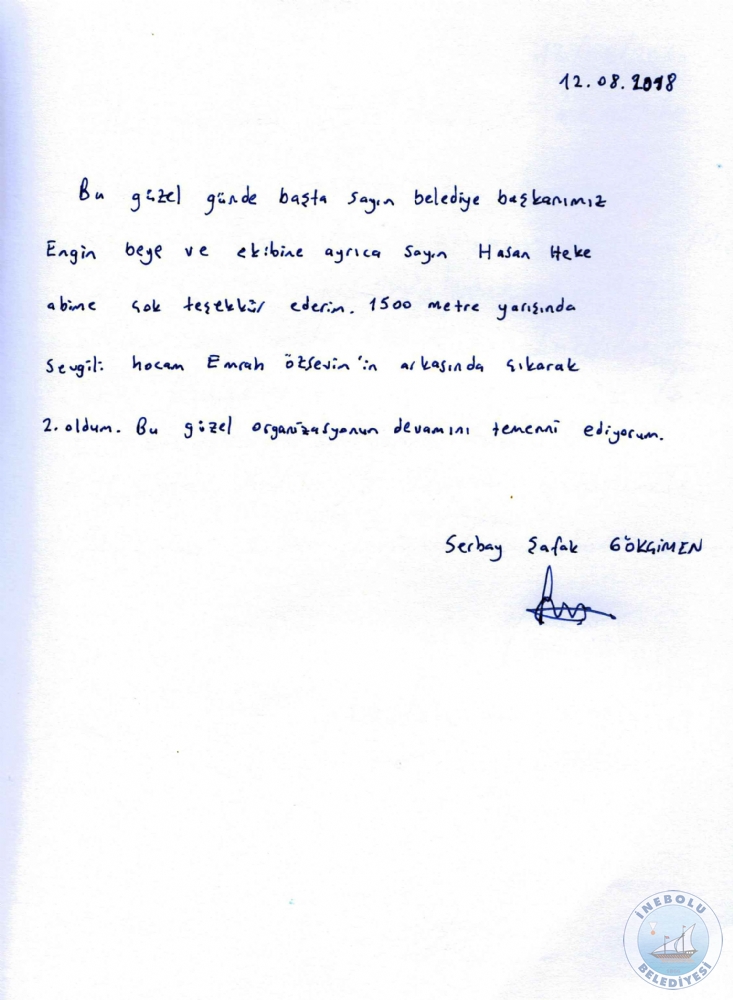 12.08.2018
Bu güzel günde başta sayın belediye başkanımız
Engin beye ve ekibine ayrıca sayın Hasan Heke
abime çok teşekkür ederim. 1500 metre yarışında
sevgili hocam Emrah Özsevin'in arkasında çıkarak
2. oldum. Bu güzel organizasyonun devamını temenni ediyorum.
Serbay Şafak GÖKÇİMEN
İNEBOLU
BELEDİYESİ